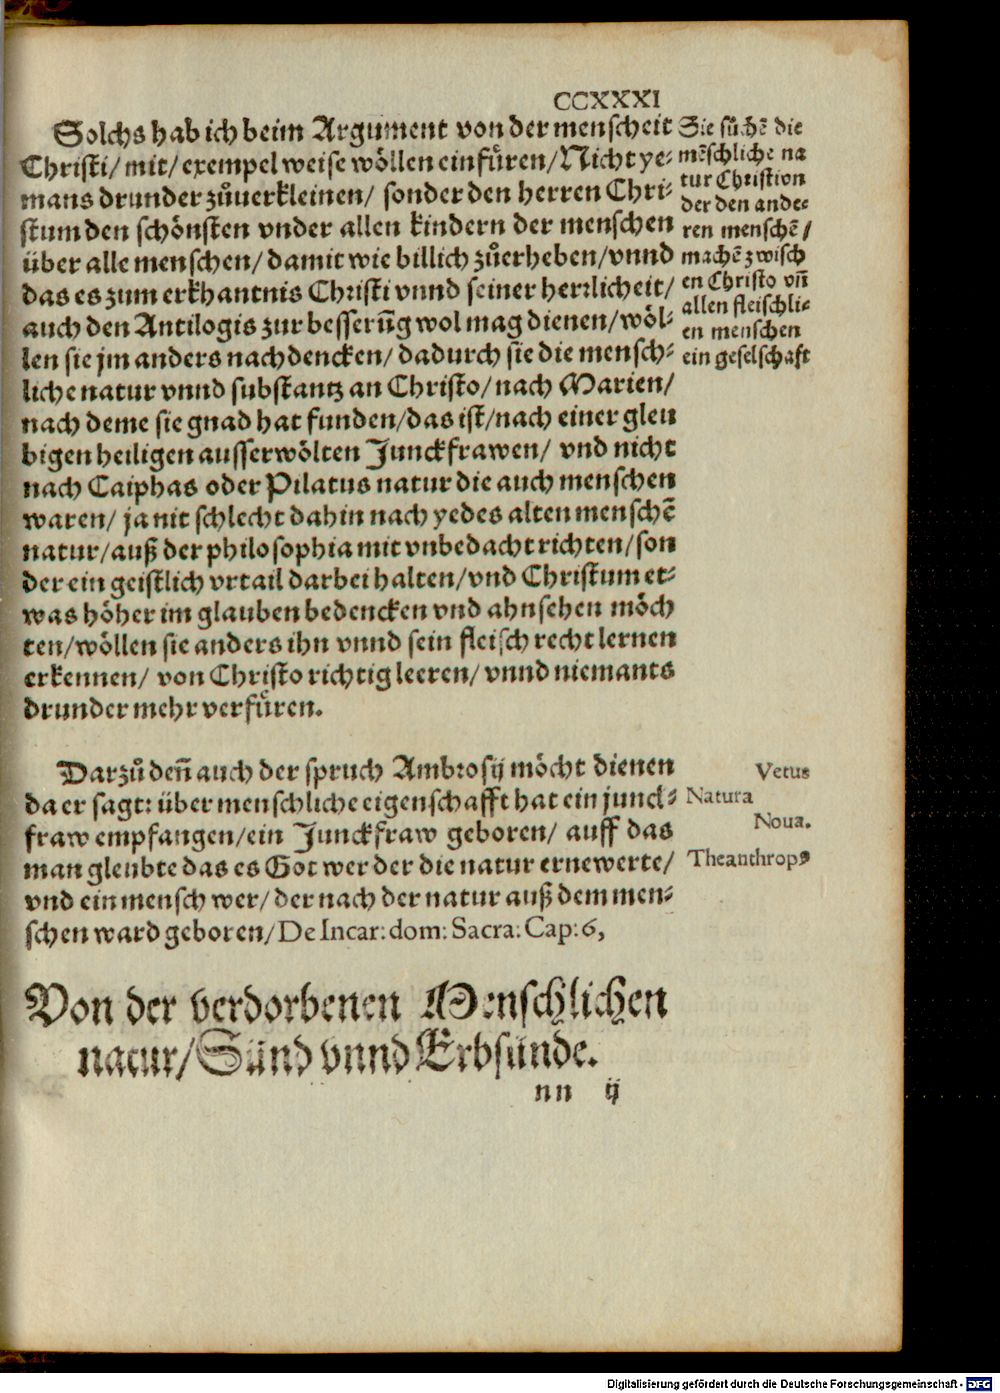 CCXXXI
Solchs hab ich beim Argument von der menscheit
Christi/ mit/ exempel weise wöllen einfüren/ Nicht ye⸗
mans drunder zůuerkleinen/ sonder den herren Chri⸗
stum den schönsten vnder allen kindern der menschen
über alle menschen/ damit wie billich zůerheben/ vnnd
das es zum erkhantnis Christi vnnd seiner herrlicheit/
auch den Antilogis zur besserūg wol mag dienen/ wöl⸗
len sie jm anders nachdencken/ dadurch sie die mensch⸗
liche natur vnnd substantz an Christo/ nach Marien/
nach deme sie gnad hat funden/ das ist/ nach einer gleu
bigen heiligen ausserwölten Junckfrawen/ vnd nicht
nach Caiphas oder Pilatus natur die auch menschen
waren/ ja nit schlecht dahin nach yedes alten menschē
natur/ auß der philosophia mit vnbedacht richten/ son
der ein geistlich vrtail darbei halten/ vnd Christum et⸗
was höher im glauben bedencken vnd ahnsehen möch
ten/ wöllen sie anders ihn vnnd sein fleisch recht lernen
erkennen/ von Christo richtig leeren/ vnnd niemants
drunder mehr verfüren.
Sie sůchē die
mēschliche na
tur Christi on
der den ande⸗
ren menschē/
machē zwisch
en Christo vn̄
allen fleischli⸗
en menschen
ein geselschaft
Darzů den̄ auch der spruch Ambrosij möcht dienen
da er sagt: über menschliche eigenschafft hat ein junck⸗
fraw empfangen/ ein Junckfraw geboren/ auff das
man gleubte das es Got wer der die natur ernewerte/
vnd ein mensch wer/ der nach der natur auß dem men⸗
schen ward geboren/ De Incar: dom: Sacra: Cap: 6,
Vetus
Natura
Noua.
Theanthropꝰ
Von der verdorbenen Menschlichen
natur/ Sünd vnnd Erbsünde.
nn ij
Digitalisierung gefördert durch die Deutsche Forschungsgemeinschaft - DFG